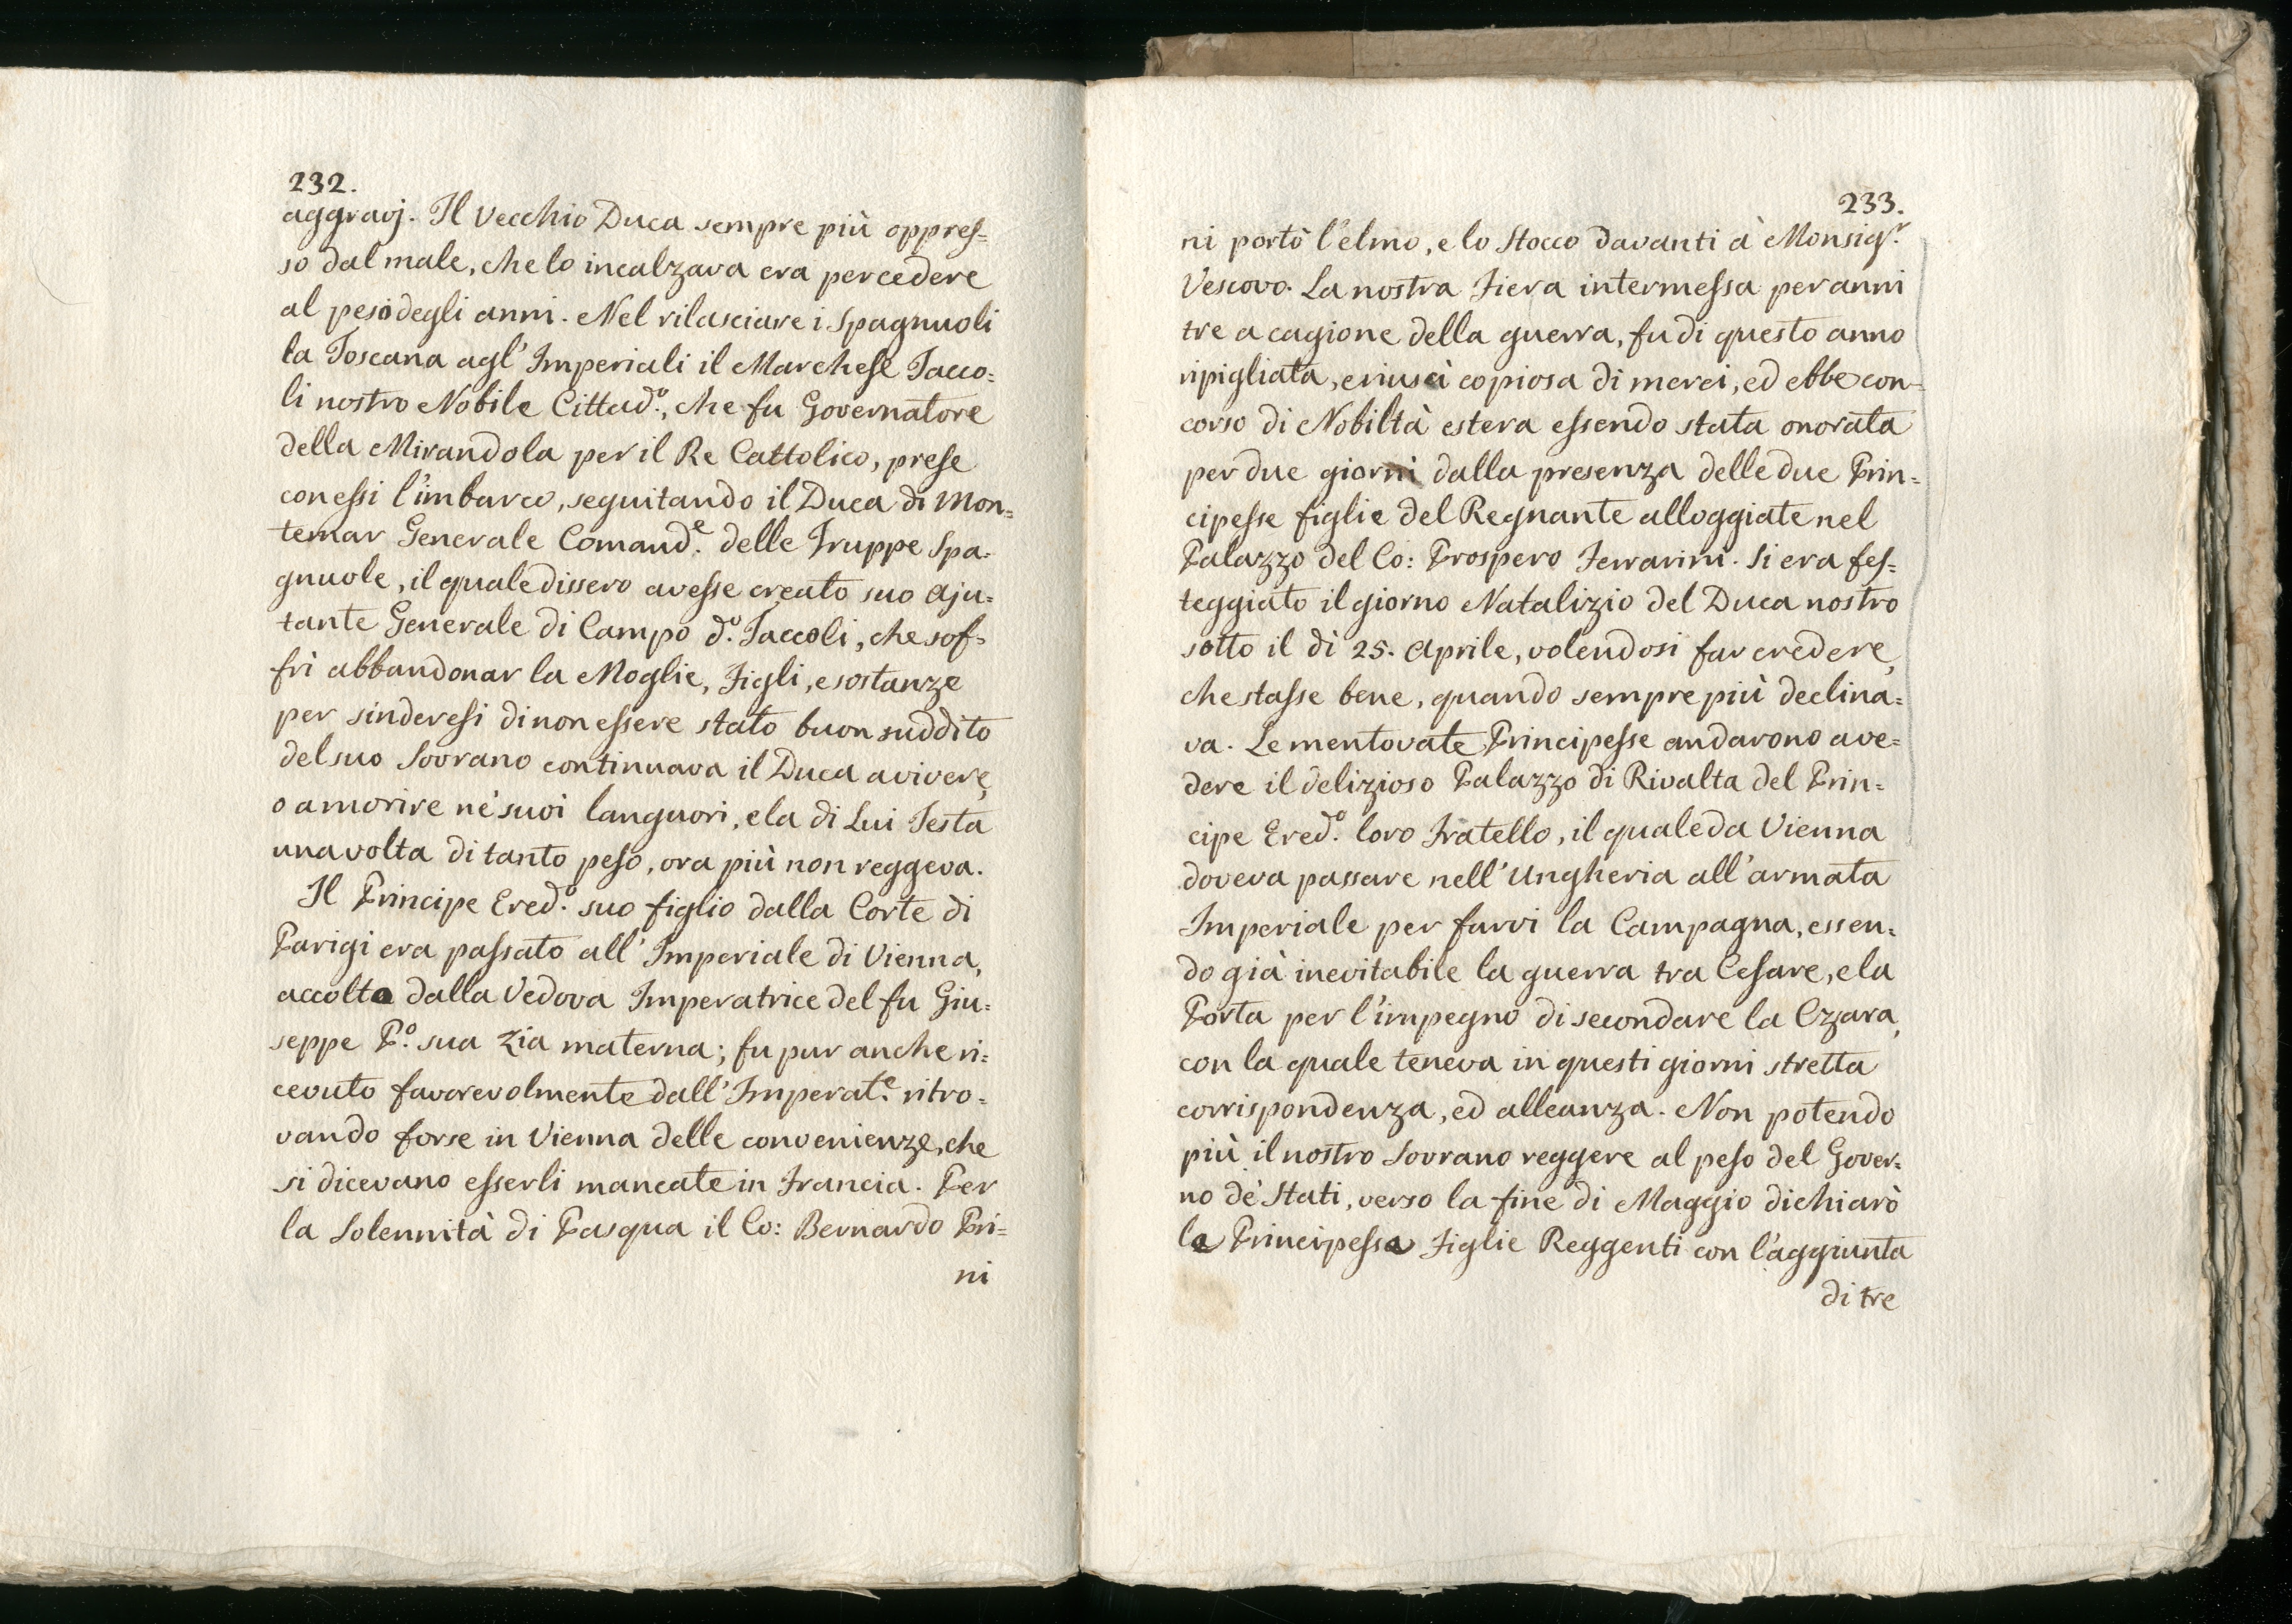 232.
aggravj. Il Vecchio Duca sempre più oppres=
so dal male, che lo incalzava era per cedere
al peso degli anni. Nel rilasciare i Spagnuoli
la Toscana agl' Imperiali il Marchese Tacco=
li nostro Nobile Cittad.º, che fu Governatore
della Mirandola per il Re Cattolico, prese
con essi l'imbarco, seguitando il Duca di Mon=
temar Generale Comand.e delle Truppe Spa=
gnuole, il quale dissero avesse creato suo Aju=
tante Generale di Campo d.º Taccoli, che sof=
frì abbandonar la Moglie, Figli, e sostanze
per sinderesi di non essere stato buon suddito
del suo Sovrano continuava il Duca a vivere,
o a morire ne' suoi languori, e la di Lui Testa
una volta di tanto peso, ora più non reggeva.
Il Principe Ered.º suo figlio dalla Corte di
Parigi era passato all' Imperiale di Vienna,
accolto dalla Vedova Imperatrice del fu Giu=
seppe P.º sua Zia materna; fu pur anche ri=
cevuto favorevolmente dall' Imperat.e ritro=
vando forse in Vienna delle convenienze, che
si dicevano esserli mancate in Francia. Per
la Solennità di Pasqua il Co: Bernardo Pri=
ni
233.
ni portò l'elmo, e lo Stocco davanti à Monsig.r
Vescovo. La nostra Fiera intermessa per anni
tre a cagione della guerra, fu di questo anno
ripigliata, e riuscì copiosa di merci, ed ebbe con=
corso di Nobiltà estera essendo stata onorata
per due giorni dalla presenza delle due Prin=
cipesse figlie del Regnante alloggiate nel
Palazzo del Co: Prospero Ferrarini. Si era fes=
teggiato il giorno Natalizio del Duca nostro
sotto il dì 25. Aprile, volendosi far credere,
che stasse bene, quando sempre più declina=
va. Le mentovate Principesse andarono a ve=
dere il delizioso Palazzo di Rivalta del Prin=
cipe Ered.º loro Fratello, il quale da Vienna
doveva passare nell' Ungheria all' armata
Imperiale per farvi la Campagna, essen=
do già inevitabile la guerra tra Cesare, e la
Porta per l'impegno di secondare la Czara,
con la quale teneva in questi giorni stretta
corrispondenza, ed alleanza. Non potendo
più il nostro Sovrano reggere al peso del Gover=
no de' Stati, verso la fine di Maggio dichiarò
le Principesse Figlie Reggenti con l'aggiunta
di tre